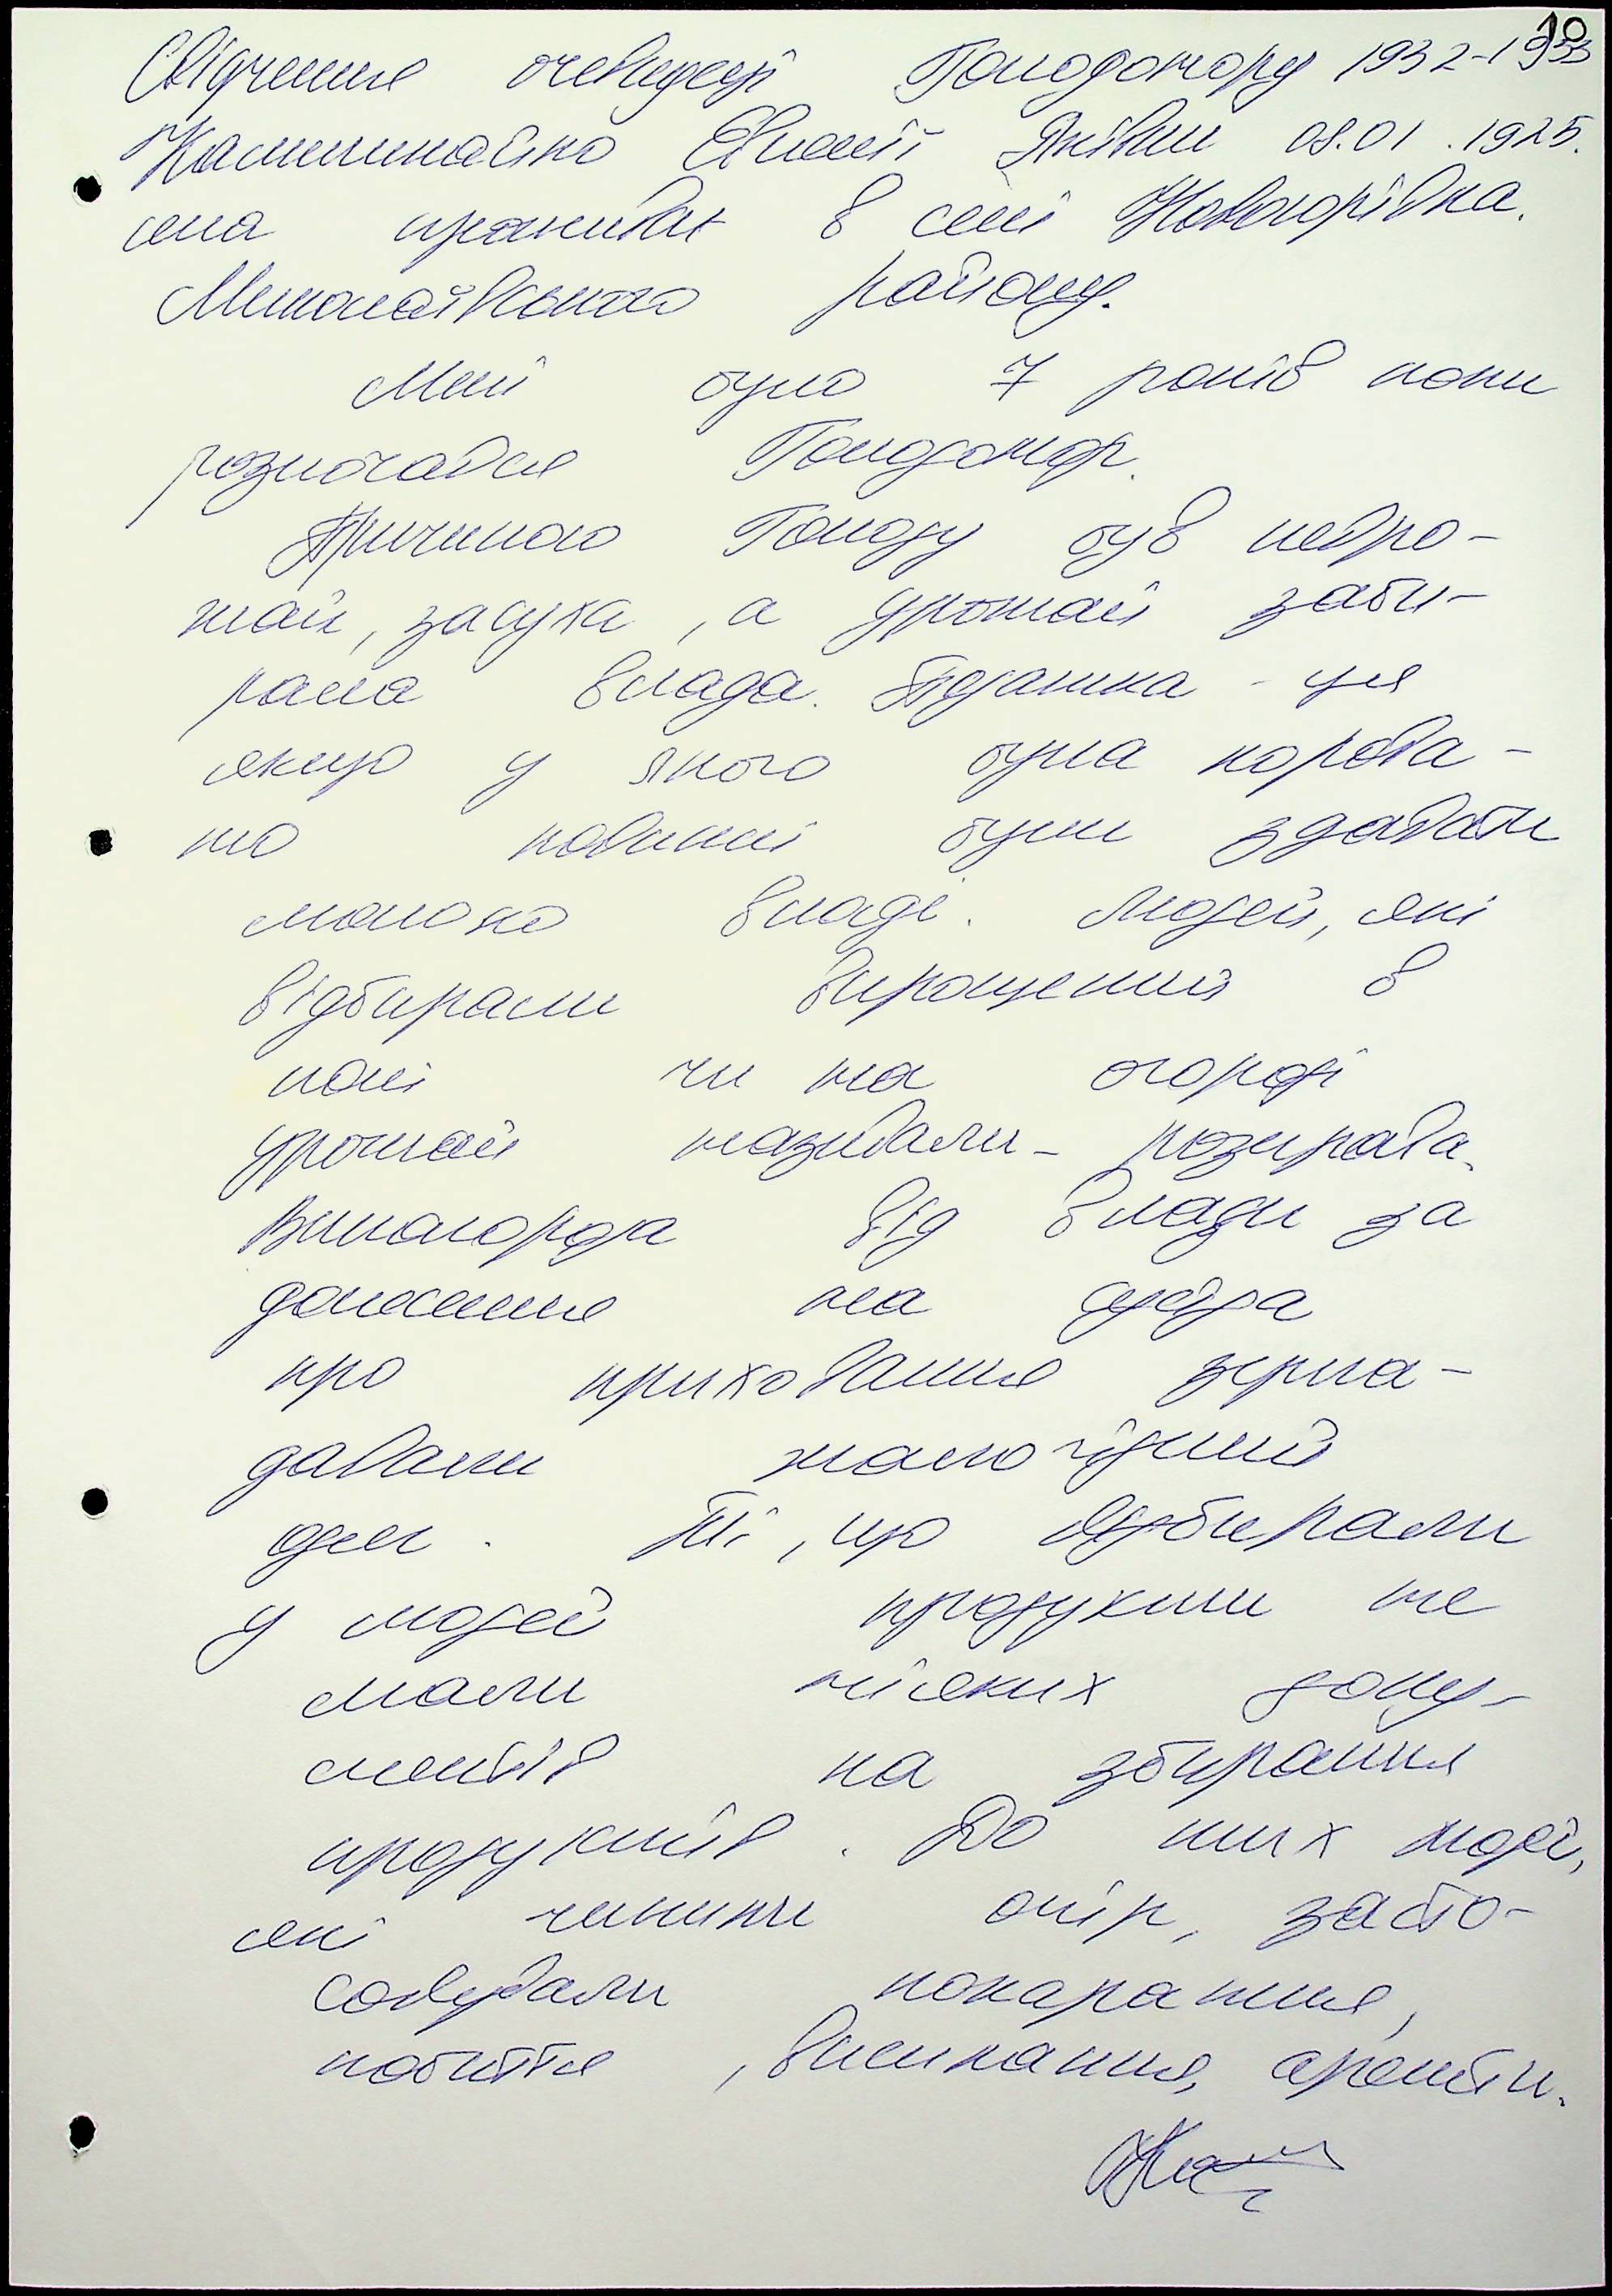 10
Свідчення очевидця Голодомору 1932-1933
Євгенії 08.01.1925.
села проживає в селі
Миколаївського району.
Мені було 7 років коли
розпочався Голодомор.
Причиною Голоду був невро-
жай, засуха, а урожай заби-
рала влада. Податки - це
якщо у якого була корова -
то повинні були здавати
молоко владі. Людей, які
відбирали вирощений в
полі чи на огороді
урожай називали - розправа.
Винагорода від влади за
донесення на сусіда
про приховання зерна -
давали малоїдний
день. Ті, що відбирали
у людей продукти не
мали ніяких доку-
ментів на збирання
продуктів. До тих людей,
які чинили опір, засто-
совували покарання,
побиття, висилання, арешти.